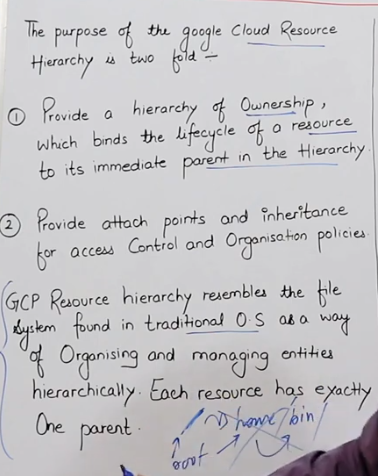 The purpose of the google Cloud Resource
Hierarchy is two fold —
① Provide a hierarchy of Ownership,
which binds the lifecycle of a resource
to its immediate parent in the Hierarchy.
② Provide attach points and inheritance
for access Control and Organisation policies.
GCP Resource hierarchy resembles the file
system found in traditional O.S as a way
of Organising and managing entities
hierarchically. Each resource has exactly
One parent.
/ home/bin/
root